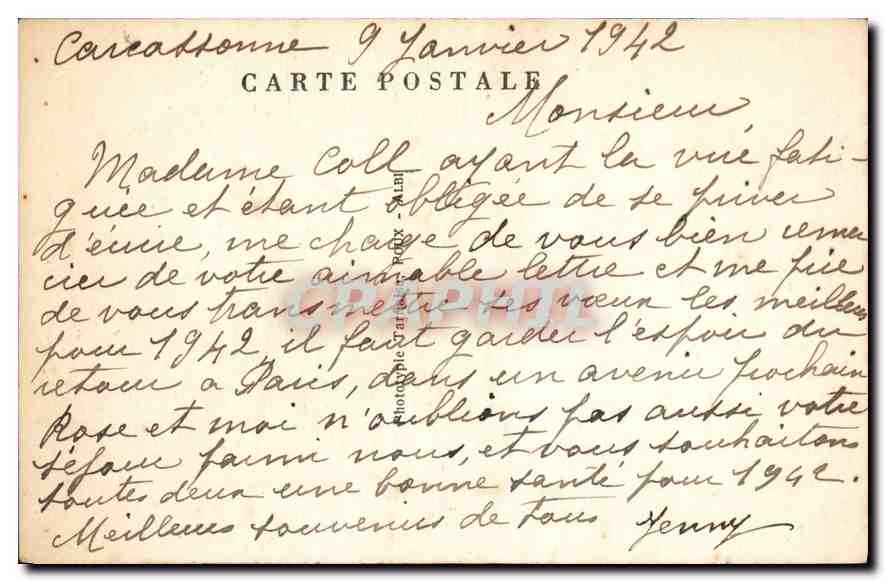 Carcassonne 9 Janvier 1942
CARTE POSTALE
Monsieur,
Madame Coll ayant la vue fati-
guée et étant obligée de se priver
d'écrire, me charge de vous bien remer
cier de votre aimable lettre et me prie
de vous transmettre ses vœux les meilleurs
pour 1942, il faut garder l'espoir du
retour a Paris, dans un avenir prochain
Rose et moi n'oublions pas aussi votre
séjour parmi nous, et vous souhaitons
toutes deux une bonne santé pour 1942.
Meilleurs souvenirs de tous
Jenny
Phototypie Tarnaise POUX - ALBI
CPAPHIL